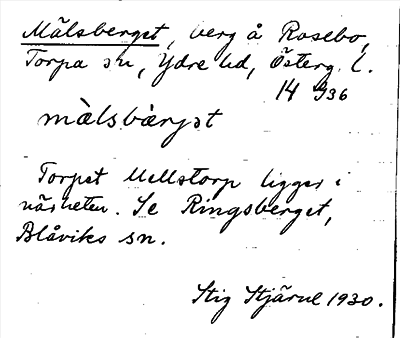 Mälsberget, berg å Rosebo,
Torpa sn, Ydre hd, Österg. l.
14 9 36
màlsbàrjət
Torpet Mellstorp ligger i
närheten. Se Ringsberget,
Blåviks sn.
Stig Stjärne 1930.